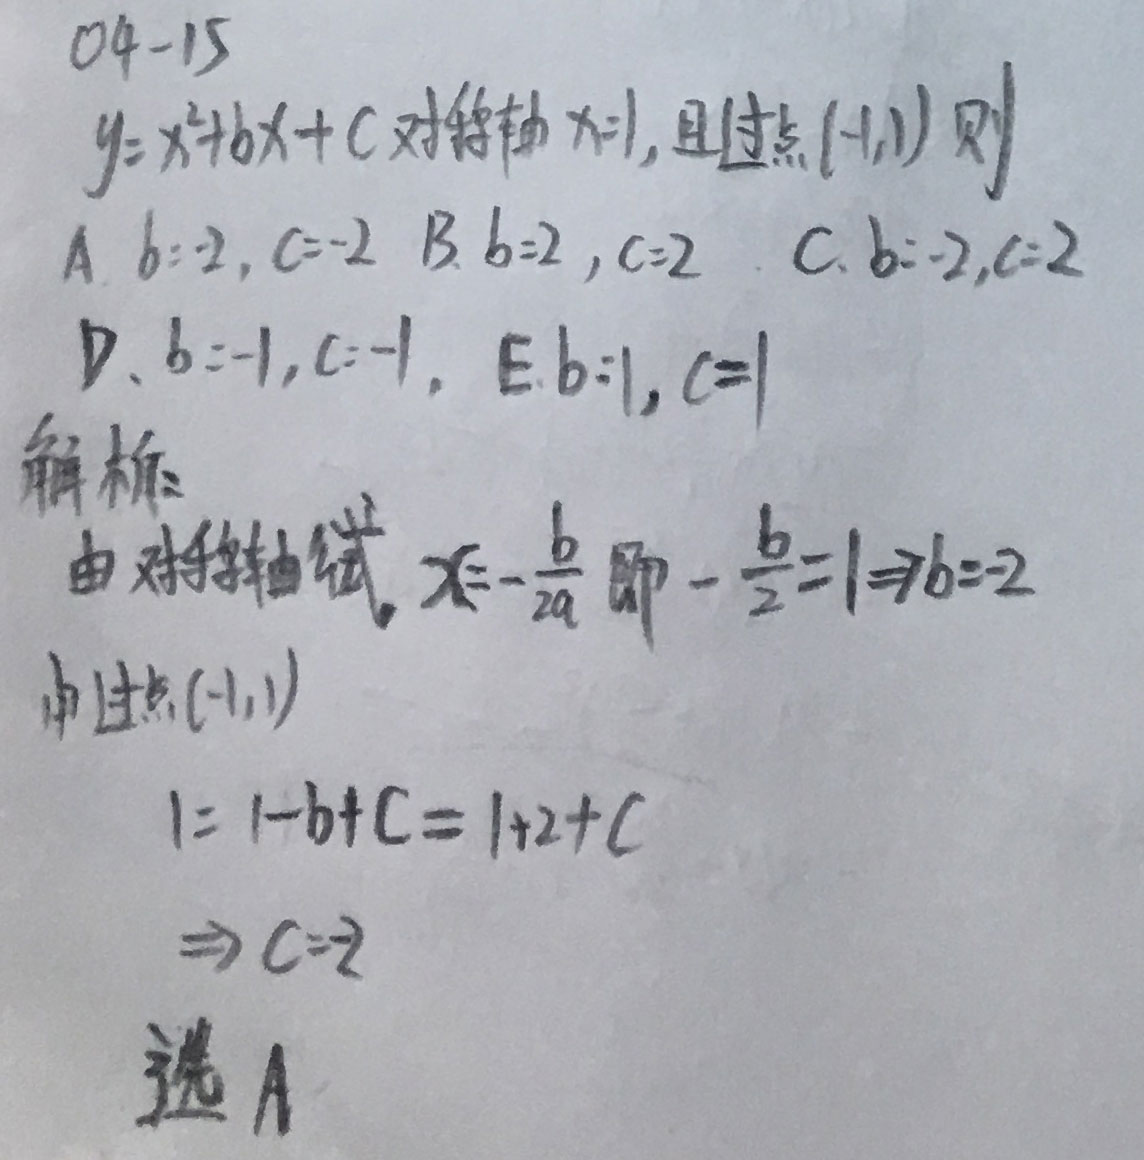 04-15
y=x²+bx+c对称轴x=1,且过点(-1,1)则
A. b=-2, c=-2 B. b=2, c=2 C. b=-2, c=2
D、b=-1, c=-1. E. b=1, c=1
解析:
由对称轴 x=-b/2a 即 -b/2=1⇒b=-2
由过点(-1,1)
1=1-b+C=1+2+C
⇒C=-2
选A